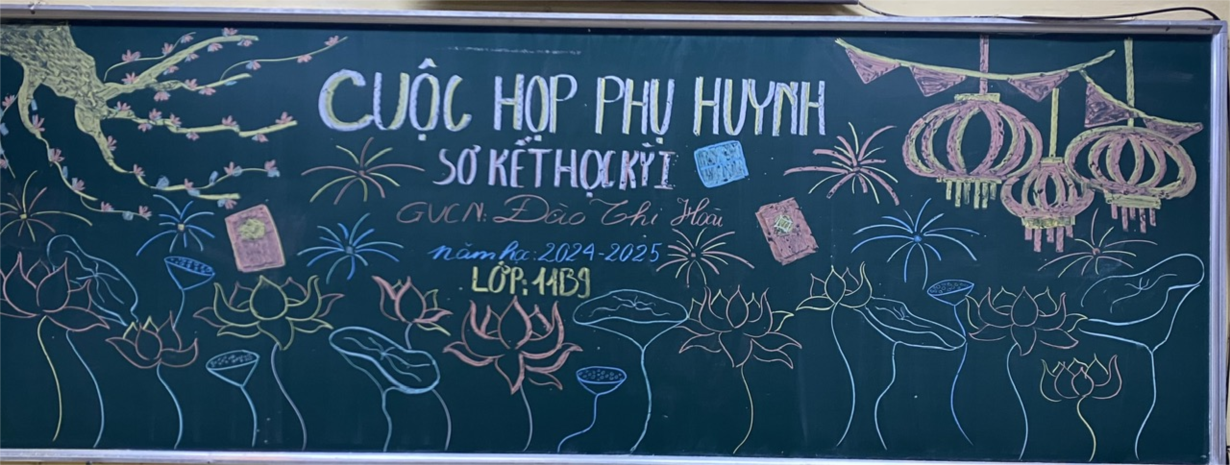 CUỘC HỌP PHỤ HUYNH
SƠ KẾT HỌC KỲ I
GVCN: Đào Thị Hoài
năm học: 2024-2025
LỚP: 11B9